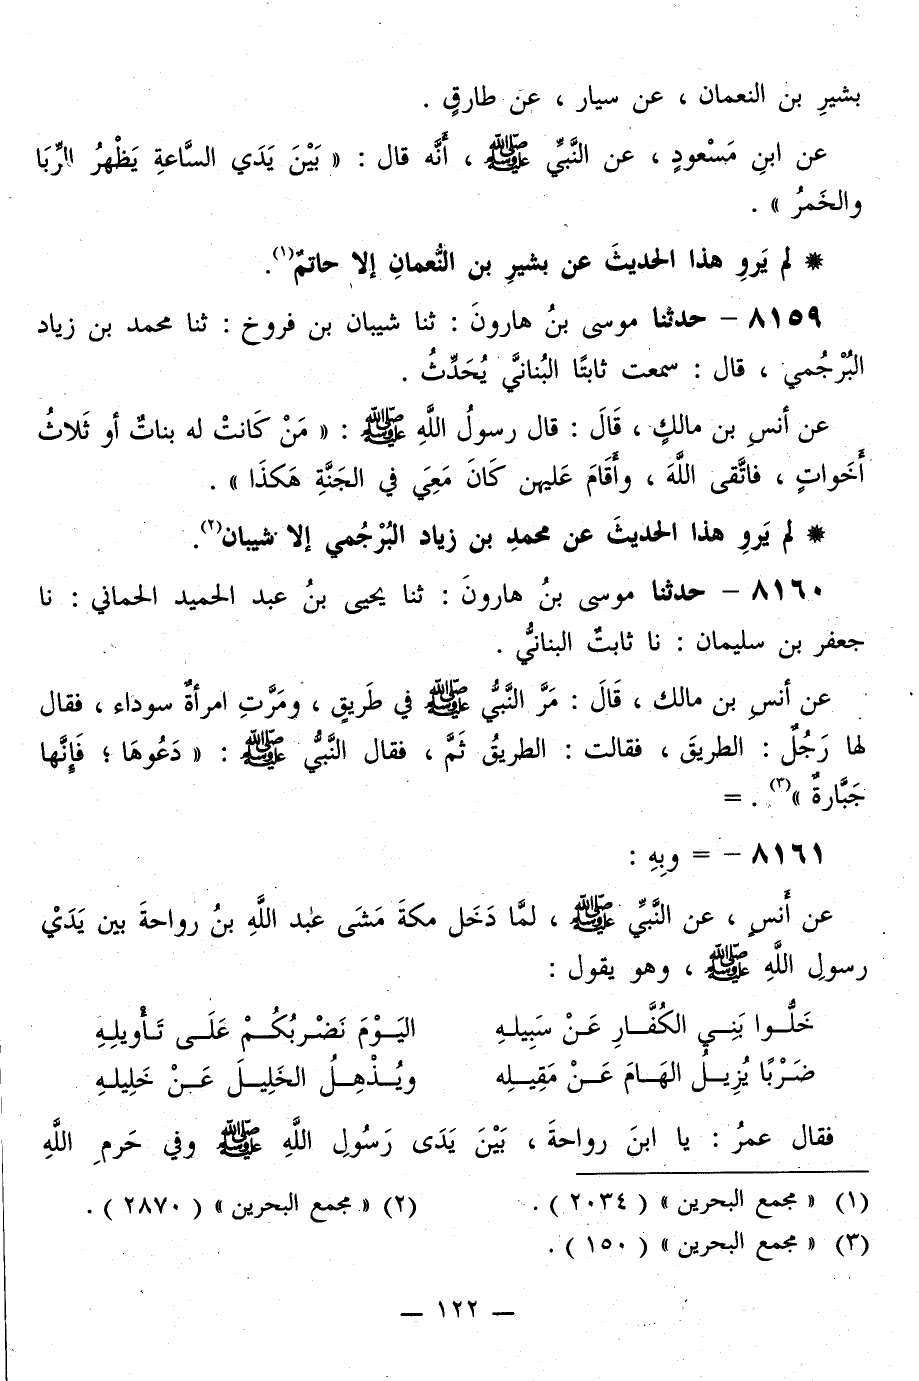 بشيرِ بن النعمان ، عن سيار ، عن طارقٍ .
عن ابنِ مَسْعودٍ ، عن النَّبيِّ ﷺ ، أَنَّه قال : « بَيْنَ يَدَي السَّاعةِ يَظْهرُ الرِّبَا
والخَمرُ » .
* لم يَروِ هذا الحديثَ عن بشيرِ بن النُّعمانِ إلا حاتمٌ(١).
٨١٥٩ – حدثنا موسى بنُ هارونَ : ثنا شيبان بن فروخ : ثنا محمد بن زياد
البُرْجُمي ، قال : سمعت ثابتًا البُنانيَّ يُحَدِّثُ .
عن أنسِ بن مالكٍ ، قَالَ : قال رسولُ اللَّهِ ﷺ : « مَنْ كَانتْ له بناتٌ أو ثَلاثُ
أَخَواتٍ ، فاتَّقى اللَّهَ ، وأَقَامَ عَليهن كَانَ مَعِيَ في الجَنَّةِ هَكذَا » .
* لم يَروِ هذا الحديثَ عن محمدِ بن زياد البُرْجُمي إلا شيبان(٢).
٨١٦٠ – حدثنا موسى بنُ هارونَ : ثنا يحيى بنُ عبد الحميد الحماني : نا
جعفر بن سليمان : نا ثابتٌ البنانيُّ .
عن أنسِ بن مالك ، قَالَ : مَرَّ النَّبيُّ ﷺ في طَريقٍ ، ومَرَّتِ امرأةٌ سوداء ، فقال
لها رَجُلٌ : الطريقَ ، فقالت : الطريقُ ثَمَّ ، فقال النَّبيُّ ﷺ : « دَعُوهَا ؛ فَإِنَّها
جَبَّارةٌ »(٣) . =
٨١٦١ – = وبِهِ :
عن أَنسٍ ، عن النَّبيِّ ﷺ ، لمَّا دَخَل مكةَ مَشَى عبد اللَّهِ بنُ رواحةَ بين يَدَيْ
رسولِ اللَّهِ ﷺ ، وهو يقول :
خَلُّوا بَنِي الكُفَّارِ عَنْ سَبِيلهِ اليَوْمَ نَضْرِبُكُمْ عَلَى تَأْويلِهِ
ضَرْبًا يُزِيلُ الهَامَ عَنْ مَقِيلِه ويُذْهِلُ الخَلِيلَ عَنْ خَلِيلهِ
فقال عمرُ : يا ابنَ رواحةَ ، بَيْنَ يَدَى رَسُولِ اللَّهِ ﷺ وفي حَرمِ اللَّهِ
(١) « مجمع البحرين » ( ٢٠٣٤ ) . (٢) « مجمع البحرين » ( ٢٨٧٠ ) .
(٣) « مجمع البحرين » ( ١٥٠ ) .
— ١٢٢ —